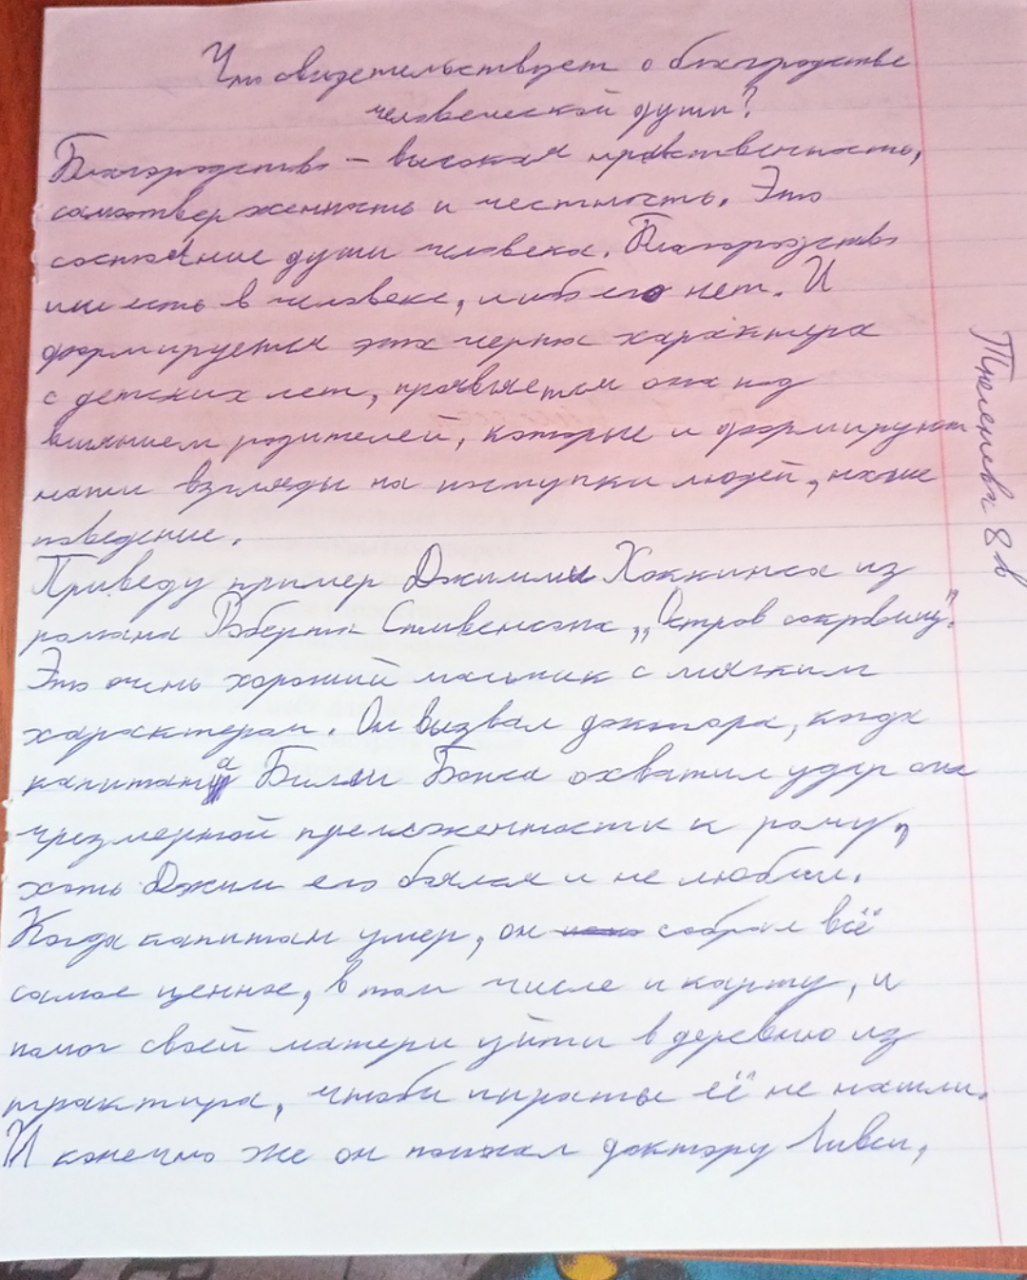 Что свидетельствует о благородстве
человеческой души?
Благородство – высокая нравственность,
самоотверженность и честность. Это
состояние души человека. Благородство
или есть в человеке, либо его нет. И
формируется эта черта характера
с детских лет, проявляется она под
влиянием родителей, которые и формируют
наши взгляды на поступки людей, наше
поведение.
Приведу пример Джимми Хоккинса из
романа Роберта Стивенсона „Остров сокровищ".
Это очень хороший мальчик с мягким
характером. Он вызвал доктора, когда
капитана Билли Бонса охватил удар от
чрезмерной приложенности к рому,
хоть Джим его боялся и не любил.
Когда капитан умер, он собрал всё
самое ценное, в том числе и карту, и
помог своей матери уйти в деревню из
трактира, чтобы пираты её не нашли.
И конечно же он доктору Ливси,
Тюленева 8 в